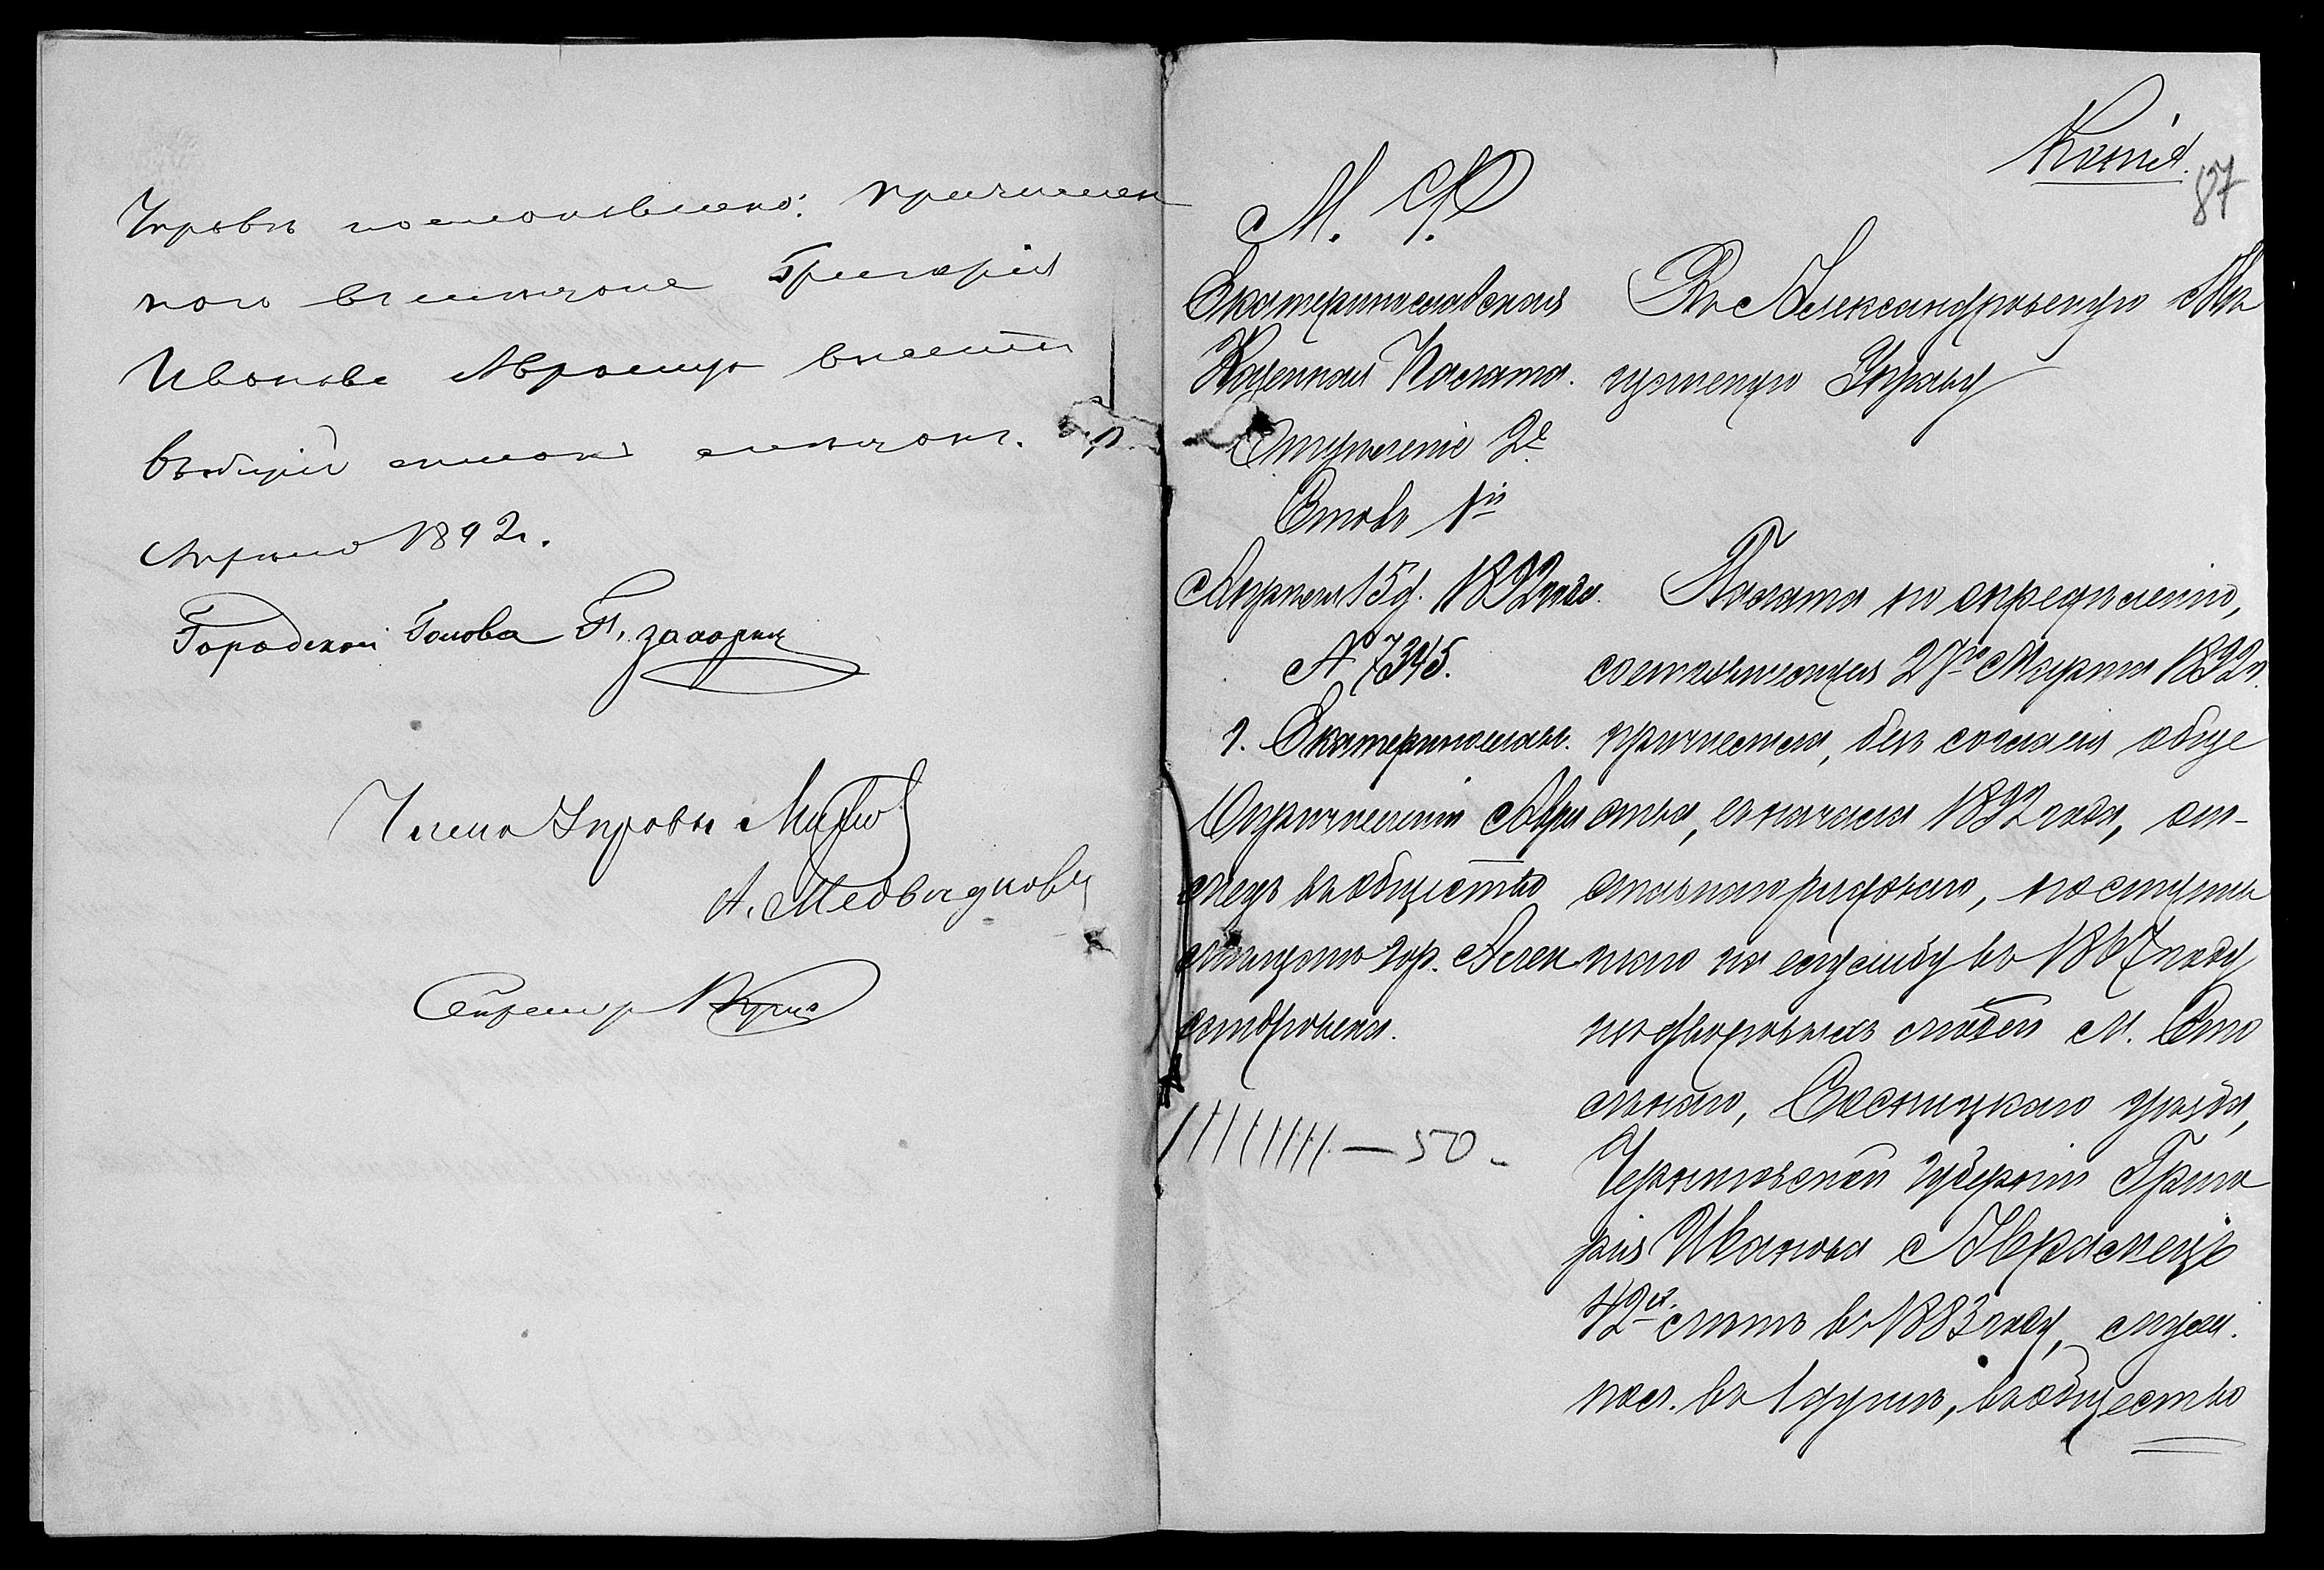 Управѣ постановлено: причислен
ного въ мѣщане Григорія
Иванова Аврамца внести
въ общій списокъ мѣщанъ.
Апрѣля 1892 г.
Городской Голова
Члены Управы
А. Медвѣдковъ
Секретарь
Копія.
87
М. Ф.
Екатеринославская
Казенная Палата.
Отдѣленіе 2е
Столъ 1й
Апрѣля 15 д. 1892 года.
№ 7345.
г. Екатеринославъ.
О причисленіи Авра
мецъ въ общество
мѣщанъ гор. Алек
сандровска.
————————— 50
Въ Александровскую Мѣ
щанскую Управу
Палата по опредѣленію,
состоявшемуся 27го Марта 1892 г.
причислила, безъ согласія обще
ства, съ начала 1892 года, от-
ставнаго рядоваго, поступив
шаго на службу въ 1867 году
изъ дворовыхъ людей м. Сто
льнаго, Сосницкаго уѣзда,
Черниговской губерніи Григо
рія Иванова Аврамецъ
42х лѣтъ въ 1883 году,
въ 1 душѣ, въ общество